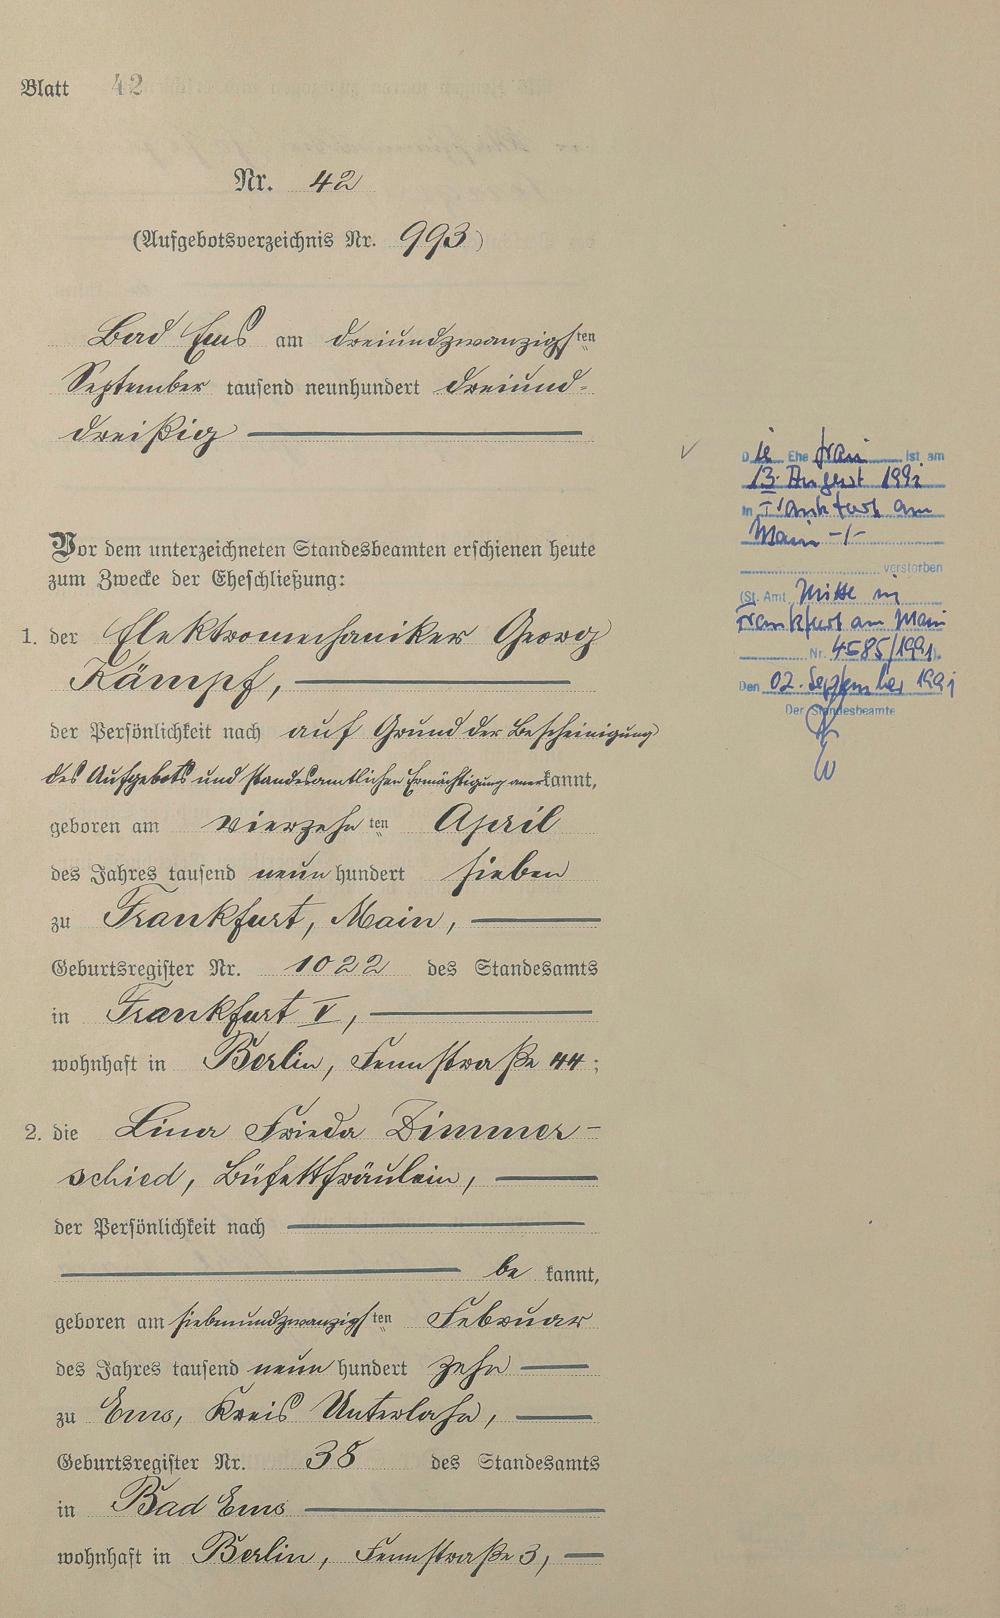 Blatt 42
Nr. 42
(Aufgebotsverzeichnis Nr. 993)
Bad Ems am dreiundzwanzigsten
September tausend neunhundert dreiund-
dreißig
Vor dem unterzeichneten Standesbeamten erschienen heute
zum Zwecke der Eheschließung:
1. der Elektromechaniker Georg
Kämpf,
der Persönlichkeit nach auf Grund der Bescheinigung
des Aufgebots und standesamtlichen Ermächtigung anerkannt,
geboren am vierzehnten April
des Jahres tausend neunhundert sieben
zu Frankfurt, Main,
Geburtsregister Nr. 1022 des Standesamts
in Frankfurt V,
wohnhaft in Berlin, Fennstraße 44;
2. die Lina Frieda Dimmer-
schied, Büfettfräulein,
der Persönlichkeit nach
bekannt,
geboren am siebenundzwanzigsten Februar
des Jahres tausend neunhundert zehn
zu Ems, Kreis Unterlahn,
Geburtsregister Nr. 38 des Standesamts
in Bad Ems
wohnhaft in Berlin, Fennstraße 3,
Die Ehefrau ist am
13. August 1991
in Frankfurt am
Main -/-
verstorben
(St. Amt Mitte in
Frankfurt am Main
Nr. 4585/1991).
Den 02. September 1991
Der Standesbeamte